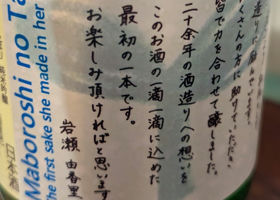 造りに
くさんの方に助けていただき、
皆で力を合わせて醸しました。
二十余年の酒造りへの想いを
このお酒の一滴一滴に込めた
最初の一本です。
お楽しみ頂ければと思います
岩瀬 由香里
Maboroshi no Ta
The first sake she made in her
純米吟醸
日本酒